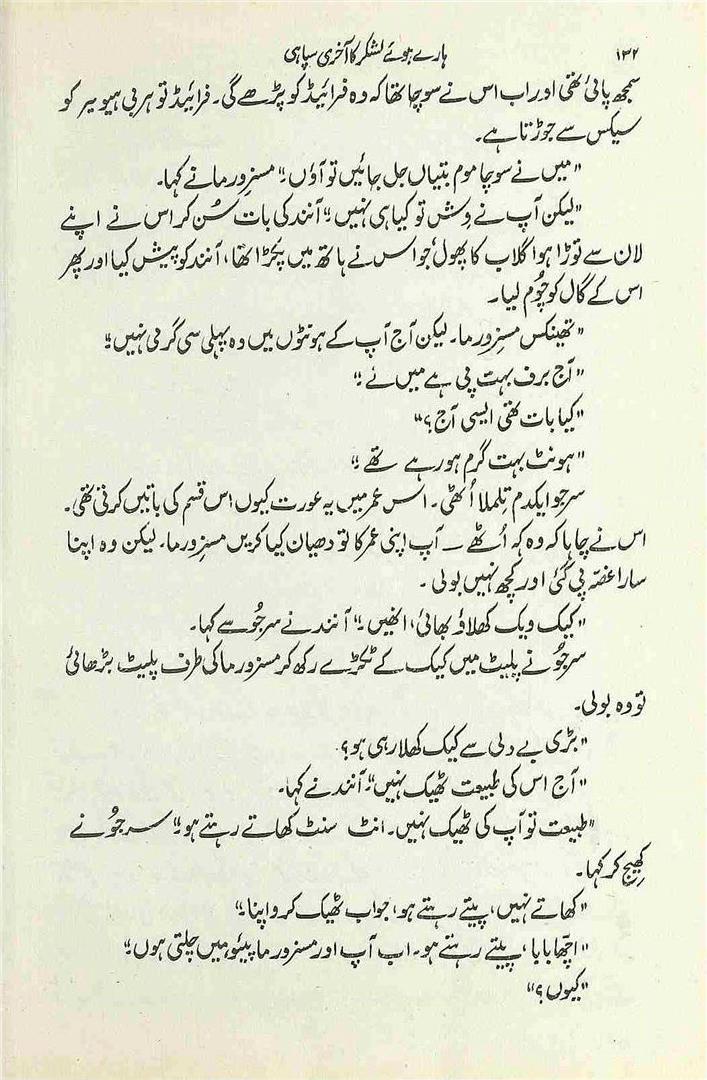 ۱۳۲ ہارے ہوئے لشکر کا آخری سپاہی
سمجھ پائی تھی اور اب اس نے سوچا تھا کہ وہ فرائیڈ کو پڑھے گی۔ فرائیڈ تو ہر بی ہیویر کو
سیکس سے جوڑتا ہے۔
"میں نے سوچا موم بتیاں جل جائیں تو آؤں۔" مسز ورما نے کہا۔
"لیکن آپ نے وِش تو کیا ہی نہیں۔" آنند کی بات سُن کر اس نے اپنے
لان سے توڑا ہوا گلاب کا پھول جو اس نے ہاتھ میں پکڑا تھا، آنند کو پیش کیا اور پھر
اس کے گال کو چوُم لیا۔
"تھینکس مسز ورما۔ لیکن آج آپ کے ہونٹوں میں وہ پہلی سی گرمی نہیں۔"
"آج برف بہت پی ہے میں نے۔"
"کیا بات تھی ایسی آج؟"
"ہونٹ بہت گرم ہو رہے تھے۔"
سرجو ایکدم تِلملا اُٹھی۔ اس عمر میں یہ عورت کیوں اس قسم کی باتیں کرتی تھی۔
اس نے چاہا کہ وہ کہہ اُٹھے ــ آپ اپنی عمر کا تو دھیان کیا کریں مسز ورما۔ لیکن وہ اپنا
سارا غصّہ پی گئی اور کچھ نہیں بولی۔
"کیک ویک کھلاؤ بھائی، انھیں۔" آنند نے سرجوُ سے کہا۔
سرجوُ نے پلیٹ میں کیک کے ٹکڑے رکھ کر مسز ورما کی طرف پلیٹ بڑھائی
تو وہ بولی۔
"بڑی بے دلی سے کیک کھلا رہی ہو؟
"آج اس کی طبیعت ٹھیک نہیں۔" آنند نے کہا۔
"طبیعت تو آپ کی ٹھیک نہیں۔ انٹ سنٹ کھاتے رہتے ہو۔" سرجوُ نے
کھِیج کر کہا۔
"کھاتے نہیں، پیتے رہتے ہو، جواب ٹھیک کرو اپنا۔"
"اچھّا بابا، پیتے رہتے ہو۔ اب آپ اور مسز ورما پیئو، میں چلتی ہوں۔"
"کیوں؟"